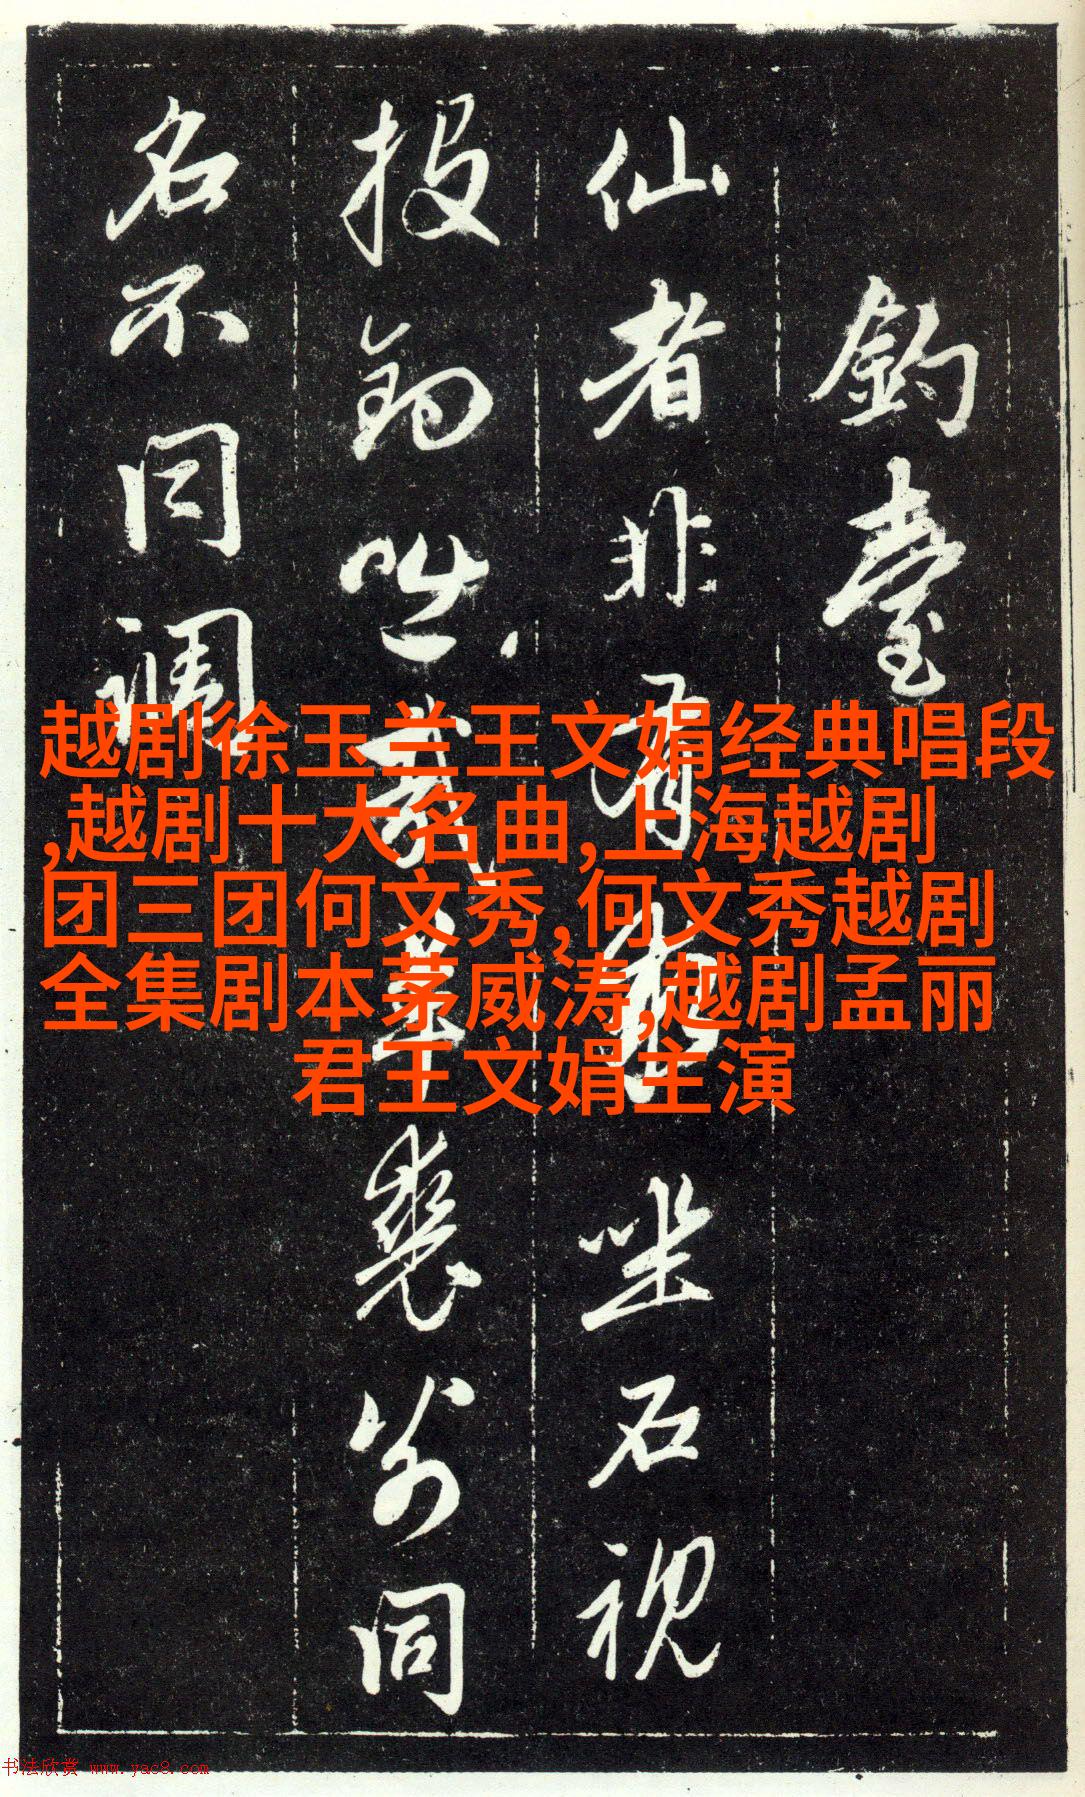 釣臺
仙者非有求坐石視
投釣咄哉羊裘翁同
名不同調
越剧徐玉兰王文娟经典唱段
,越剧十大名曲,上海越剧
团三团何文秀,何文秀越剧
全集剧本茅威涛,越剧孟丽
君王文娟主演
书法欣赏 www.yac8.com